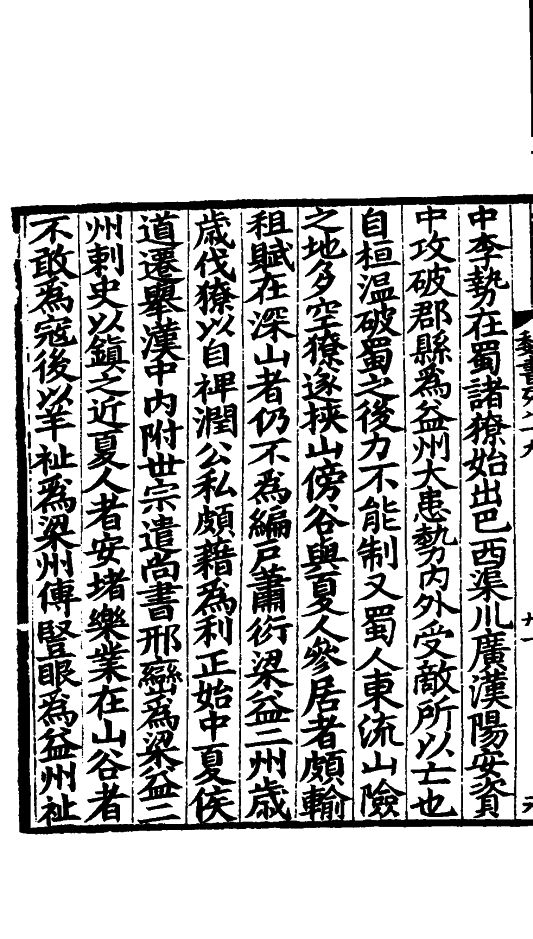 魏書列二九
九一
中李勢在蜀諸獠始出巴西渠川廣漢陽安資
中攻破郡縣為益州大患勢內外受敵所以亡也
自桓溫破蜀之後力不能制又蜀人東流山險
之地多空獠遂挾山傍谷與夏人參居者頗輸
租賦在深山者仍不為編戶蕭衍梁益二州歲
歲伐獠以自裨潤公私頗藉為利正始中夏侯
道遷舉漢中內附世宗遣尚書邢巒為梁益二
州刺史以鎮之近夏人者安堵樂業在山谷者
不敢為寇後以羊祉為梁州傅豎眼為益州祉